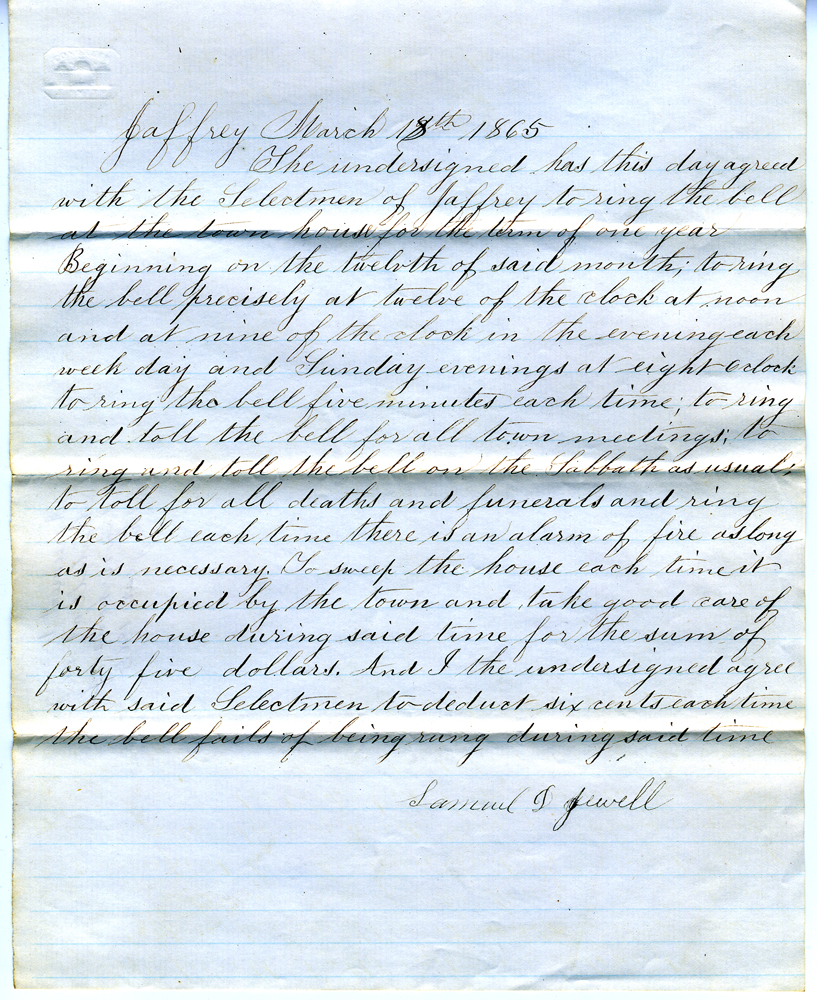 Jaffrey March 18th 1865
The undersigned has this day agreed
with the Selectmen of Jaffrey to ring the bell
at the town house for the term of one year
Beginning on the twelvth of said month; to ring
the bell precisely at twelve of the clock at noon
and at nine of the clock in the evening each
week day and Sunday evenings at eight oclock
to ring the bell five minutes each time; to ring
and toll the bell for all town meetings; to
ring and toll the bell on the Sabbath as usual;
to toll for all deaths and funerals and ring
the bell each time there is an alarm of fire as long
as is necessary. To sweep the house each time it
is occupied by the town and take good care of
the house during said time for the sum of
forty five dollars. And I the undersigned agree
with said Selectmen to deduct six cents each time
the bell fails of being rung during said time
Samuel D Jewell